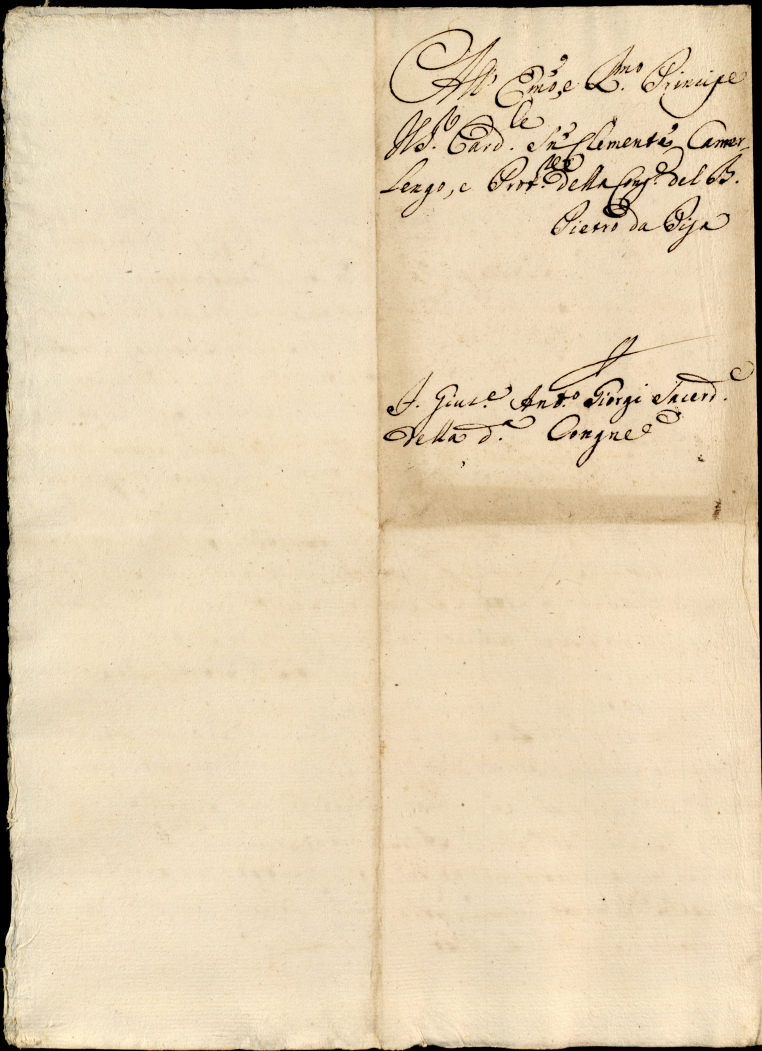 All' Em̃o, e R.mo Principe
Il S.r Card.le Sn Clemente, Camer-
lengo, e Prot.re della Cong.ne del B.
Pietro da Pisa
F. Gius.e Ant.o Giorgi Sacerd.e
della d.a Congne